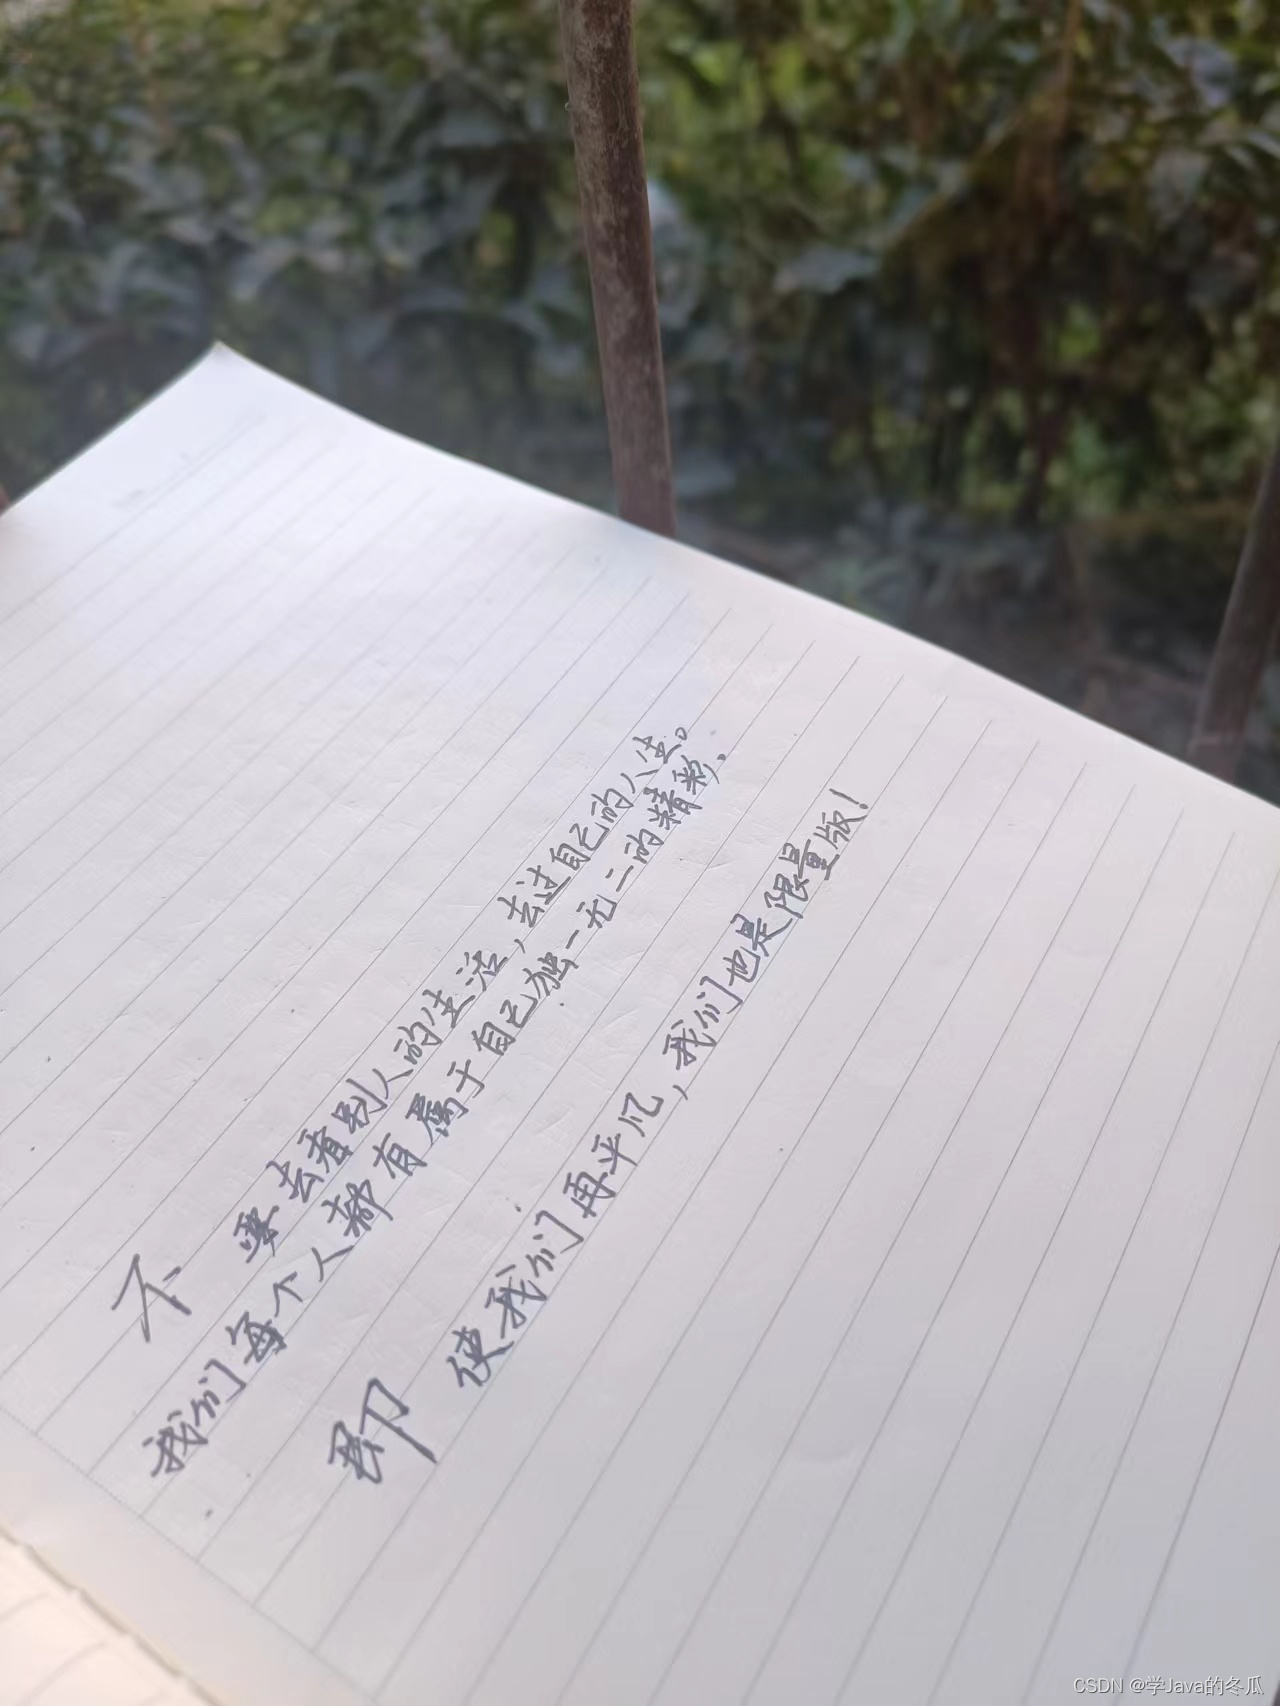 不要去看别人的生活，去过自己的人生。
我们每个人都有属于自己独一无二的精彩、
即使我们再平凡，我们也是限量版！
CSDN @学Java的冬瓜